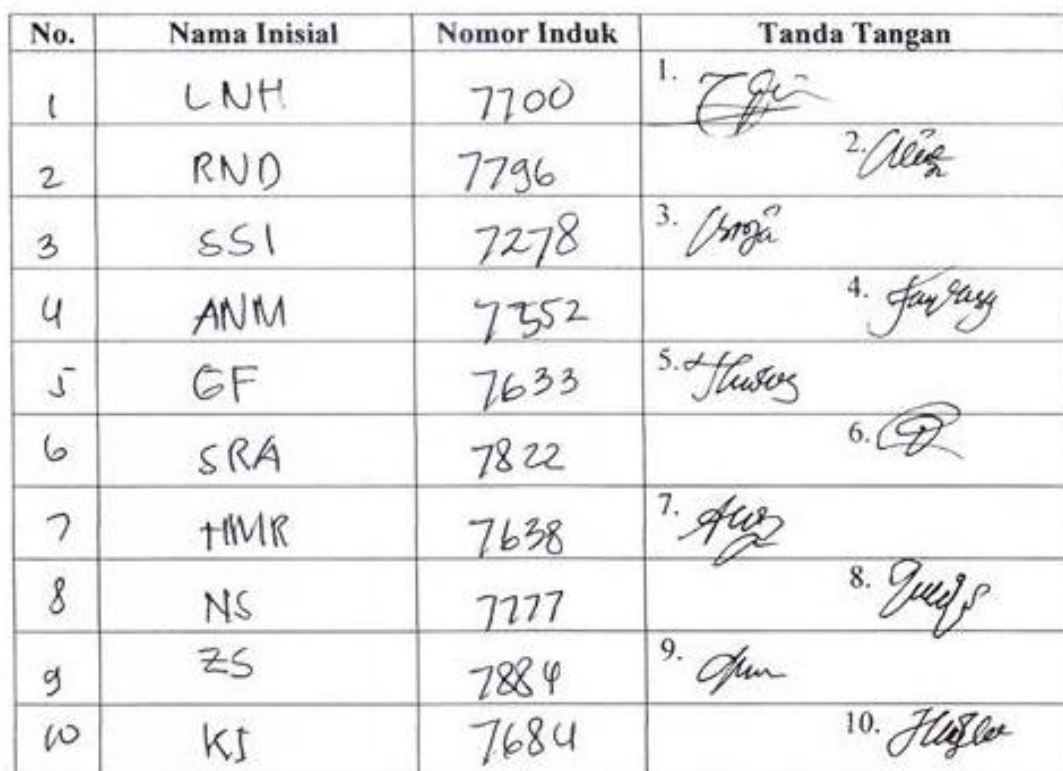 No. Nama Inisial Nomor Induk Tanda Tangan
1 LNH 7700 1.
2 RND 7796 2.
3 SSI 7278 3.
4 ANM 7352 4.
5 GF 7633 5.
6 SRA 7822 6.
7 HMR 7638 7.
8 NS 7777 8.
9 ZS 7884 9.
10 KS 7684 10.